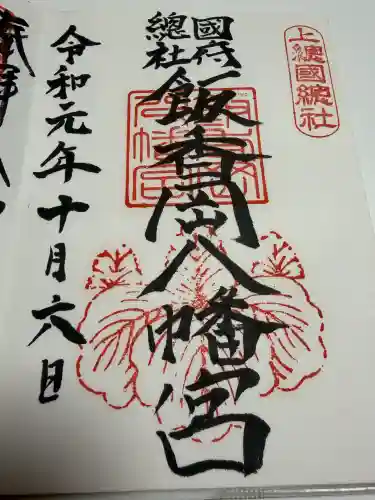 上總國總社
國府
總社
飯香岡八幡宮
令和元年十月六日